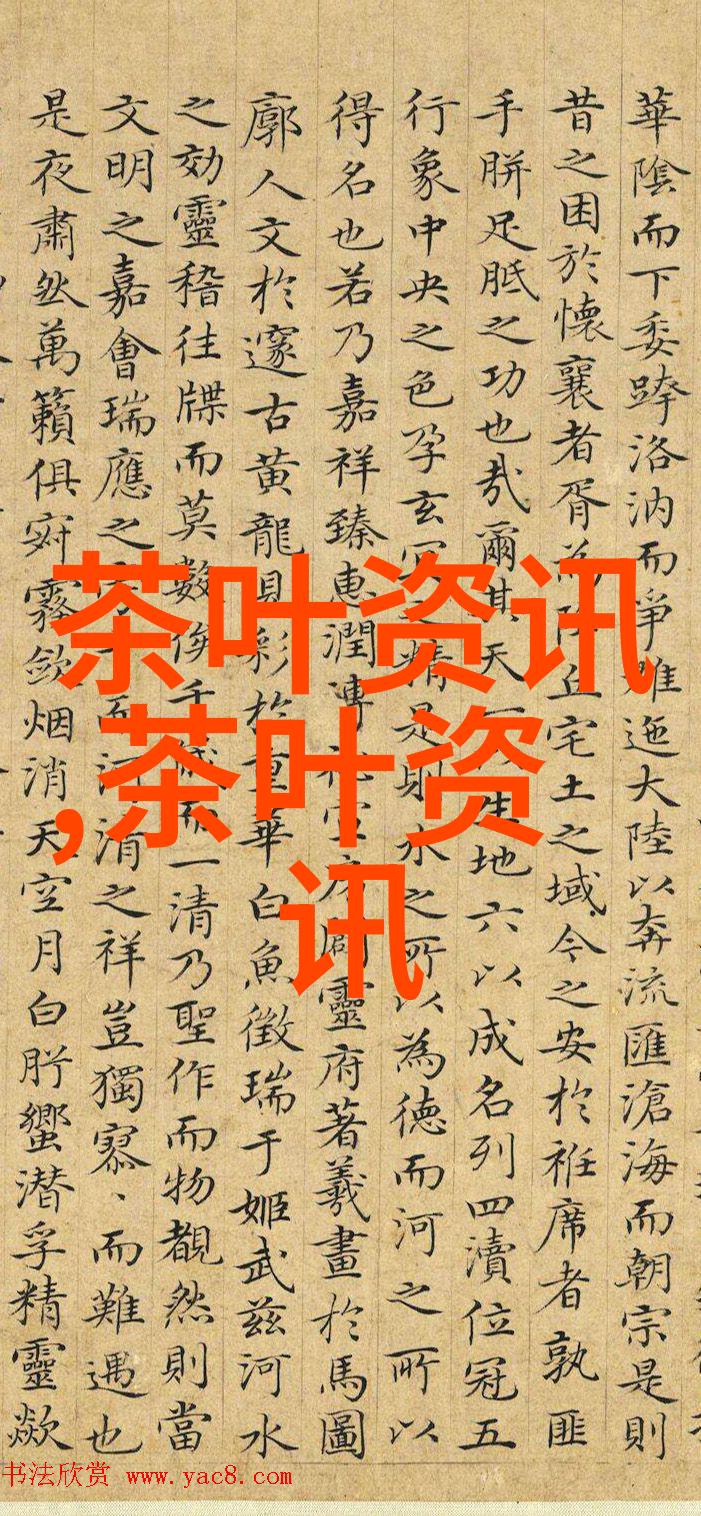 華陰而下委跨洛汭而爭雄迤大陸以奔流匯滄海而朝宗是則
昔之困於懷襄者胥為降丘宅土之域今之安於袵席者孰匪
手胼足胝之功也哉爾其天一生地六以成名列四瀆位冠五
行象中央之色孕玄冥之精是則水之所以為德而河之所以
得名也若乃嘉祥臻惠潤溥龍宮序闢靈府著羲畫於馬圖
廓人文於邃古黃龍見彩於重華白魚徵瑞于姬武茲河水
之効靈稽往牒而莫數俟千歲而一清乃聖作而物覩然則當
文明之嘉會瑞應之而河清之祥豈獨寡、而難遇也
是夜肅然萬籟俱寂霧斂烟消天空月白肸蠁潛孚精靈歘
茶叶资讯
,茶叶资
讯
书法欣赏 www.yac8.com